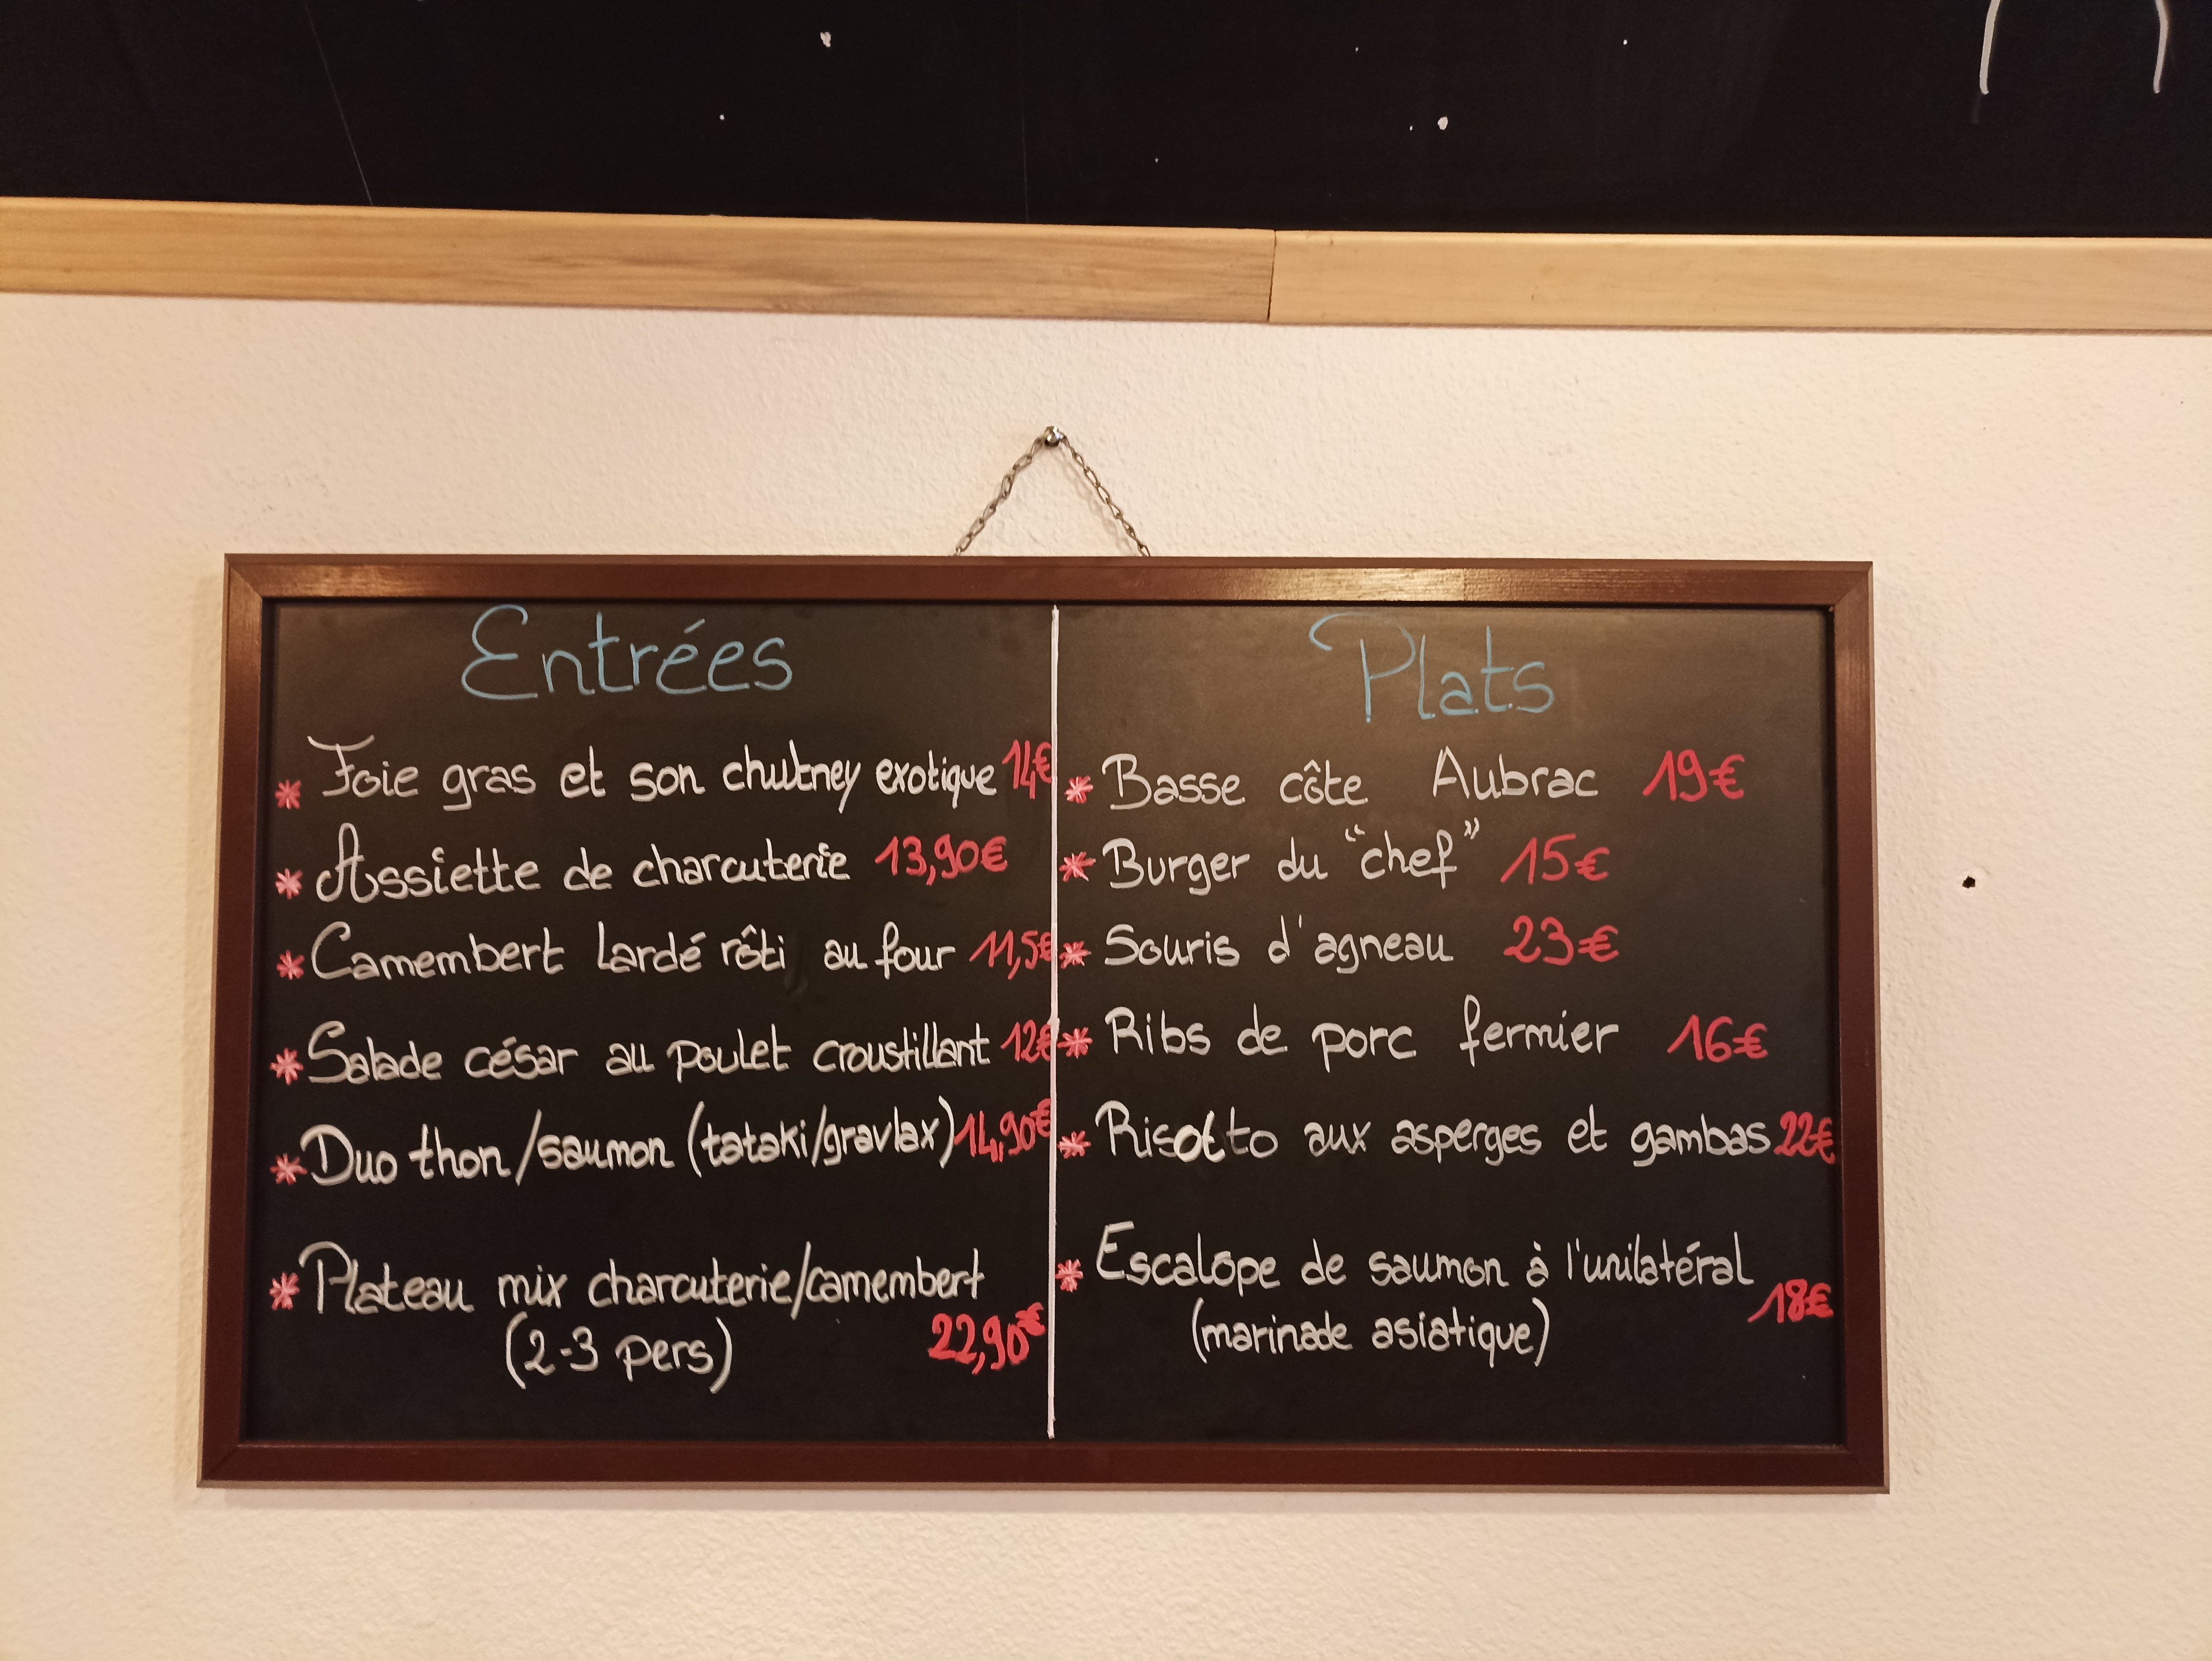 Entrées
* Foie gras et son chutney exotique 14€
* Assiette de charcuterie 13,90€
* Camembert lardé rôti au four 11,5€
* Salade césar au poulet croustillant 12€
* Duo thon/saumon (tataki/gravlax) 14,90€
* Plateau mix charcuterie/camembert
(2-3 pers) 22,90€
Plats
* Basse côte Aubrac 19€
* Burger du "chef" 15€
* Souris d'agneau 23€
* Ribs de porc fermier 16€
* Risotto aux asperges et gambas 22€
* Escalope de saumon à l'unilatéral
(marinade asiatique) 18€